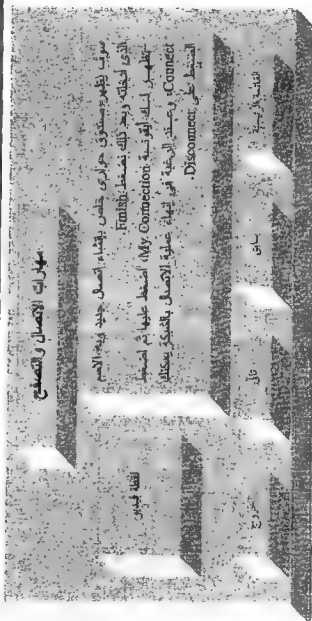 مهارات الاتصال والتصفح
سوف يظهر صندوق حوارى خاص بإنشاء إتصال جديد وبه الاسم
الذى أدخلته وبعد ذلك نضغط Finish
تظهر لديك أيقونة My Connection، اضغط عليها ثم اضغط
Connect، وعند الرغبة فى إنهاء عملية الاتصال بالشبكة يمكنك
الضغط على Disconnect
لقطة فيديو
القائمة الرئيسية
سابق
تال
خروج